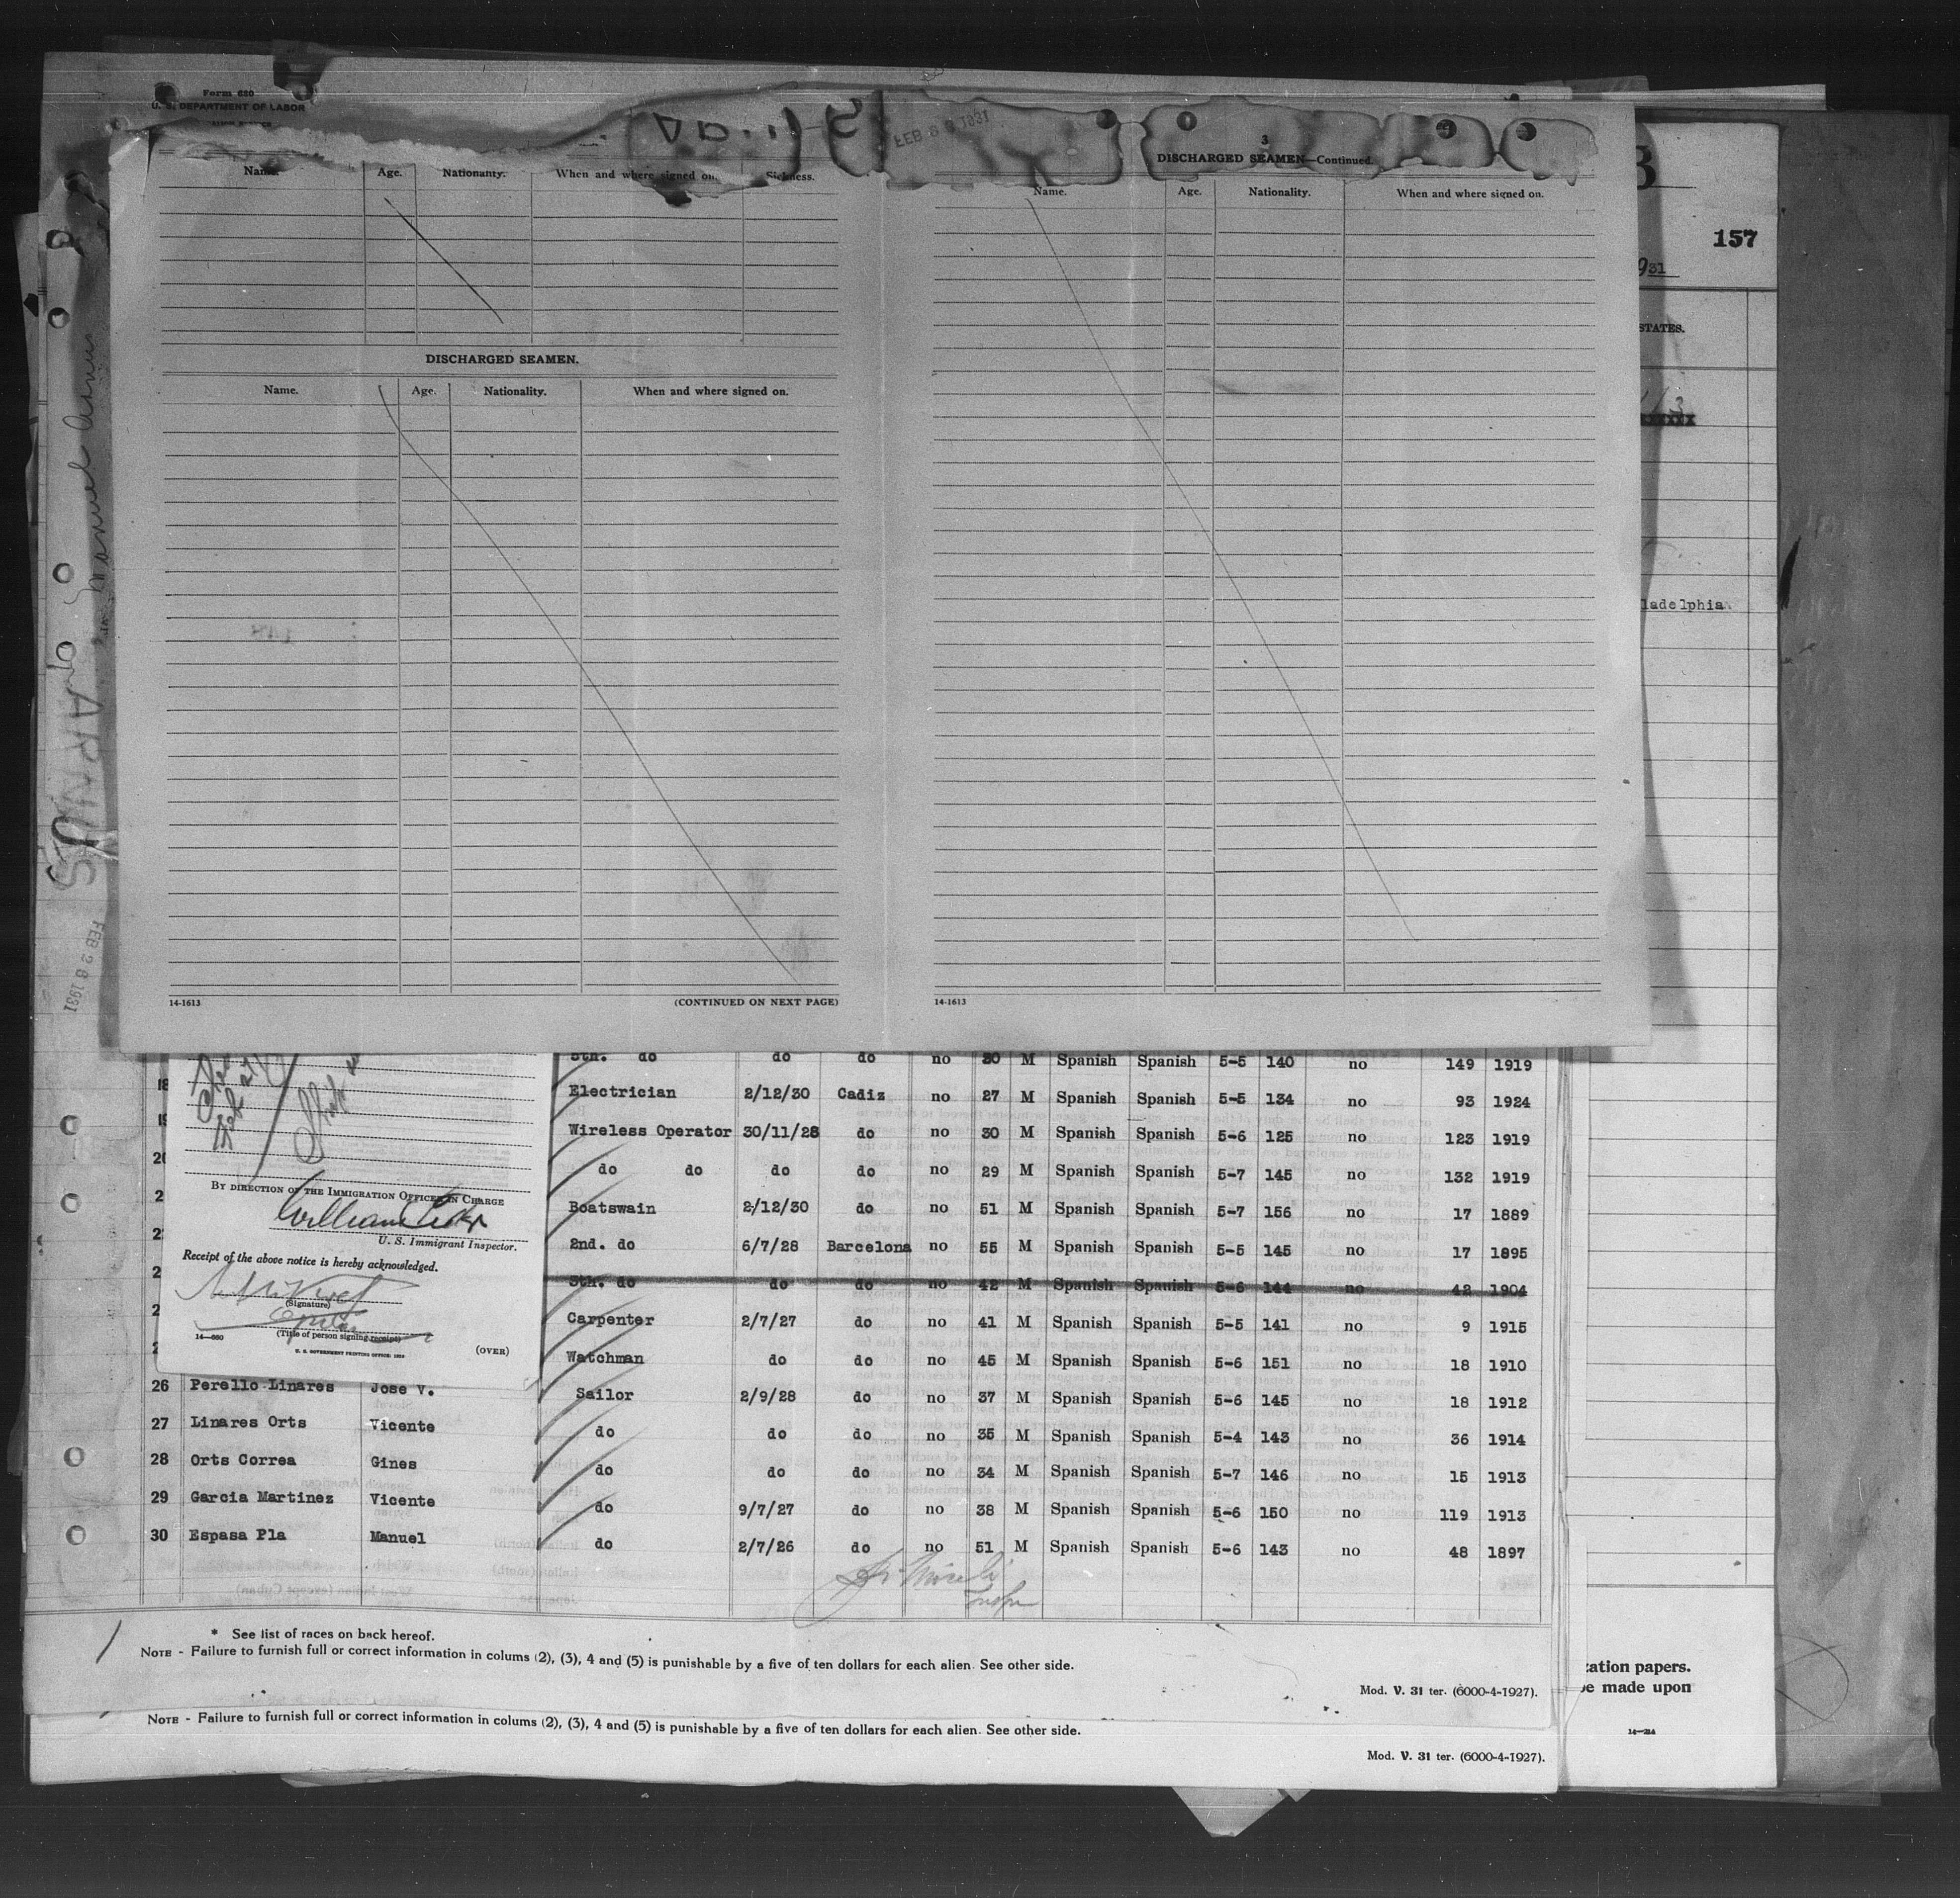 Form 680
U. S. DEPARTMENT OF LABOR
FEB 1931
3
DISCHARGED SEAMEN—Continued.
Name. Age. Nationality. When and where signed on. Sickness.
Name. Age. Nationality. When and where signed on.
DISCHARGED SEAMEN.
Name. Age. Nationality. When and where signed on.
14-1613 (CONTINUED ON NEXT PAGE)
14-1613
157
931
STATES.
ladelphia
Manuel Arnus
ARNUS
FEB 26 1931
5th. do do do no 30 M Spanish Spanish 5-5 140 no 149 1919
18 Electrician 2/12/30 Cadiz no 27 M Spanish Spanish 5-5 134 no 93 1924
Wireless Operator 30/11/28 do no 30 M Spanish Spanish 5-6 125 no 123 1919
do do do do no 29 M Spanish Spanish 5-7 145 no 132 1919
Boatswain 2/12/30 do no 51 M Spanish Spanish 5-7 156 no 17 1889
2nd. do 6/7/28 Barcelona no 55 M Spanish Spanish 5-5 145 no 17 1895
5th. do do do no 42 M Spanish Spanish 5-6 144 no 42 1904
Carpenter 2/7/27 do no 41 M Spanish Spanish 5-5 141 no 9 1915
Watchman do do no 45 M Spanish Spanish 5-6 151 no 18 1910
26 Perello Linares Jose V. Sailor 2/9/28 do no 37 M Spanish Spanish 5-6 145 no 18 1912
27 Linares Orts Vicente do do do no 35 M Spanish Spanish 5-4 143 no 36 1914
28 Orts Correa Gines do do do no 34 M Spanish Spanish 5-7 146 no 15 1913
29 Garcia Martinez Vicente do 9/7/27 do no 38 M Spanish Spanish 5-6 150 no 119 1913
30 Espasa Pla Manuel do 2/7/26 do no 51 M Spanish Spanish 5-6 143 no 48 1897
BY DIRECTION OF THE IMMIGRATION OFFICER IN CHARGE
William
U. S. Immigrant Inspector.
Receipt of the above notice is hereby acknowledged.
(Signature)
(Title of person signing receipt)
14—680
U. S. GOVERNMENT PRINTING OFFICE: 1929
(OVER)
* See list of races on back hereof.
NOTE - Failure to furnish full or correct information in colums (2), (3), 4 and (5) is punishable by a five of ten dollars for each alien. See other side.
Mod. V. 31 ter. (6000-4-1927).
NOTE - Failure to furnish full or correct information in colums (2), (3), 4 and (5) is punishable by a five of ten dollars for each alien. See other side.
Mod. V. 31 ter. (6000-4-1927).
zation papers.
be made upon